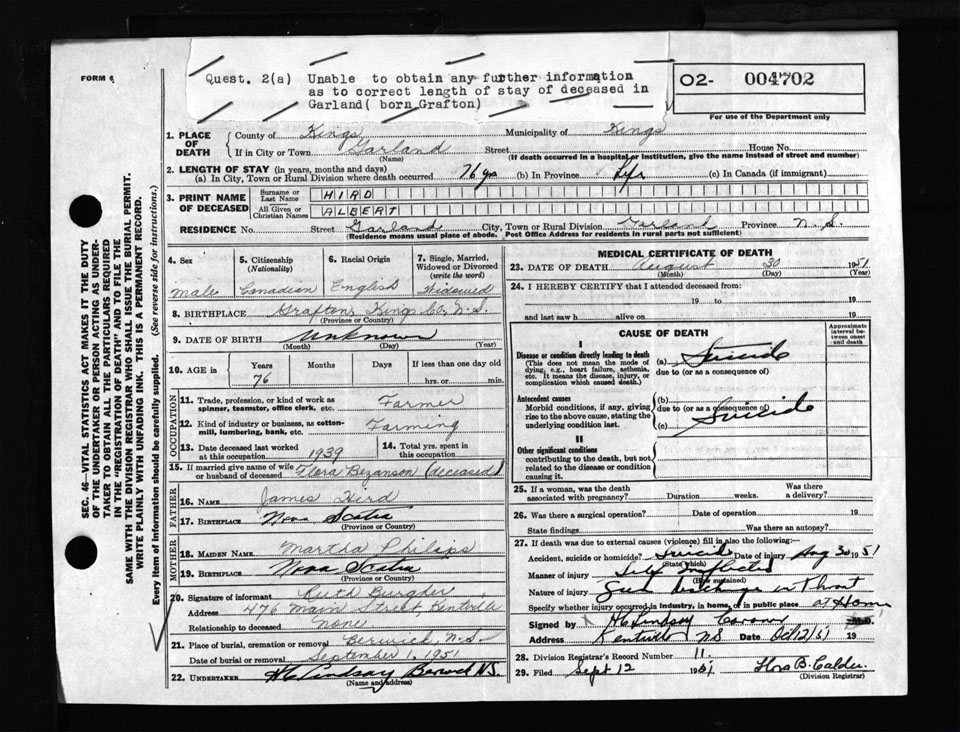 FORM 6
Quest. 2(a) Unable to obtain any further information
as to correct length of stay of deceased in
Garland( born Grafton)
O2- 004702
For use of the Department only
SEC. 46—VITAL STATISTICS ACT MAKES IT THE DUTY
OF THE UNDERTAKER OR PERSON ACTING AS UNDER-
TAKER TO OBTAIN ALL THE PARTICULARS REQUIRED
IN THE "REGISTRATION OF DEATH" AND TO FILE THE
SAME WITH THE DIVISION REGISTRAR WHO SHALL ISSUE THE BURIAL PERMIT.
WRITE PLAINLY WITH UNFADING INK. THIS IS A PERMANENT RECORD.
Every item of information should be carefully supplied. (See reverse side for instructions.)
1. PLACE OF DEATH County of Kings Municipality of Kings
If in City or Town Garland Street House No.
(Name) (If death occurred in a hospital or institution, give the name instead of street and number)
2. LENGTH OF STAY (in years, months and days)
(a) In City, Town or Rural Division where death occurred 76 yrs (b) In Province Life (c) In Canada (if immigrant)
3. PRINT NAME OF DECEASED Surname or Last Name HIRD
All Given or Christian Names ALBERT
RESIDENCE No. Street Garland City, Town or Rural Division Garland Province N. S.
(Residence means usual place of abode. Post Office Address for residents in rural parts not sufficient)
4. Sex Male
5. Citizenship (Nationality) Canadian
6. Racial Origin English
7. Single, Married, Widowed or Divorced (write the word) Widowed
8. BIRTHPLACE Grafton, Kings Co., N. S.
(Province or Country)
9. DATE OF BIRTH Unknown
(Month) (Day) (Year)
10. AGE in Years Months Days If less than one day old
76 hrs. or min.
OCCUPATION
11. Trade, profession, or kind of work as spinner, teamster, office clerk, etc. Farmer
12. Kind of industry or business, as cotton-mill, lumbering, bank, etc. Farming
13. Date deceased last worked at this occupation 1939
14. Total yrs. spent in this occupation
15. If married give name of wife or husband of deceased Flora Bezanson (deceased)
FATHER
16. NAME James Hird
17. BIRTHPLACE Nova Scotia
(Province or Country)
MOTHER
18. MAIDEN NAME Martha Philips
19. BIRTHPLACE Nova Scotia
(Province or Country)
20. Signature of informant Ruth Burgher
Address 476 Main Street, Kentville
Relationship to deceased None
21. Place of burial, cremation or removal Berwick, N. S.
Date of burial or removal September 1, 1951
22. UNDERTAKER H C Lindsay Berwick N S.
(Name and address)
MEDICAL CERTIFICATE OF DEATH
23. DATE OF DEATH August 30 1951
(Month) (Day) (Year)
24. I HEREBY CERTIFY that I attended deceased from:
19 to 19
and last saw h alive on 19
CAUSE OF DEATH
Approximate interval between onset and death
I
Disease or condition directly leading to death
(This does not mean the mode of dying, e.g., heart failure, asthenia, etc. It means the disease, injury, or complication which caused death.)
(a) Suicide
due to (or as a consequence of)
Antecedent causes
Morbid conditions, if any, giving rise to the above cause, stating the underlying condition last.
(b)
due to (or as a consequence of)
(c) Suicide
II
Other significant conditions
contributing to the death, but not related to the disease or condition causing it.
25. If a woman, was the death associated with pregnancy? Duration weeks. Was there a delivery?
26. Was there a surgical operation? Date of operation 19
State findings Was there an autopsy?
27. If death was due to external causes (violence) fill in also the following:—
Accident, suicide or homicide? Suicide Date of injury Aug 30 1951
(State which)
Manner of injury Self Inflicted
(How sustained)
Nature of injury Gun discharge in Throat
Specify whether injury occurred in industry, in home, or in public place at Home
Signed by H C Lindsay Coroner M.D.
Address Kentville NS Date 19
28. Division Registrar's Record Number 11.
29. Filed Sept 12 1951 Flora B. Calder
(Division Registrar)